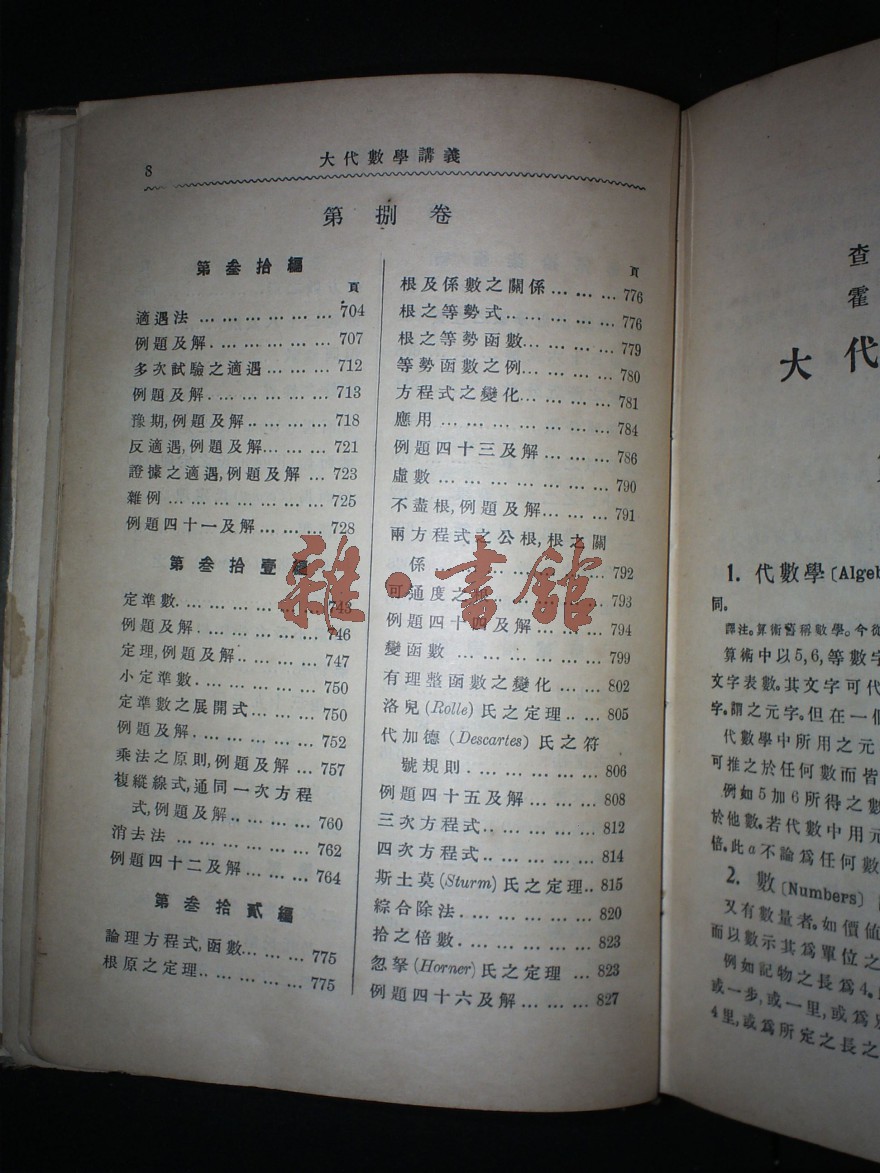 8
大代數學講義
第捌卷
第叄拾編
頁
適遇法 … … … … … … 704
例題及解. … … … … … 707
多次試驗之適遇 … … … 712
例題及解. … … … … … 713
豫期,例題及解.. … … … 718
反適遇,例題及解… … … 721
證據之適遇,例題及解 … 723
雜例 … … … … … … … 725
例題四十一及解… … … 728
第叄拾壹編
定準數. … … … … … … 743
例題及解. … … … … … 746
定理,例題及解.. … … … 747
小定準數. … … … … … 750
定準數之展開式… … … 750
例題及解. … … … … … 752
乘法之原則,例題及解 … 757
複縱線式,通同一次方程
式,例題及解.. … … … 760
消去法 … … … … … … 762
例題四十二及解… … … 764
第叄拾貳編
論理方程式,函數… … … 775
根原之定理.. … … … … 775
頁
根及係數之關係… … … 776
根之等勢式.. … … … … 776
根之等勢函數… … … … 779
等勢函數之例. … … … 780
方程式之變化… … … … 781
應用 … … … … … … … 784
例題四十三及解… … … 786
虛數 … … … … … … … 790
不盡根,例題及解… … … 791
兩方程式之公根,根之關
係 … … … … … … … 792
可通度之根 … … … … 793
例題四十四及解… … … 794
變函數 … … … … … … 799
有理整函數之變化 … … 802
洛兒(Rolle)氏之定理 .. … 805
代加德(Descartes)氏之符
號規則. … … … … … 806
例題四十五及解… … … 808
三次方程式.. … … … … 812
四次方程式.. … … … … 814
斯土莫(Sturm)氏之定理.. 815
綜合除法. … … … … … 820
拾之倍數. … … … … … 823
忽拏(Horner)氏之定理 … 823
例題四十六及解… … … 827
雜·書館
查
霍
大代
1. 代數學〔Algeb
同。
譯注。算術舊稱數學。今從
算術中以5,6,等數字
文字表數。其文字可代
字。謂之元字。但在一個
代數學中所用之元
可推之於任何數而皆
例如5加6所得之數
於他數。若代數中用元
倍。此a不論爲任何數
2. 數〔Numbers〕
又有數量者。如價值
而以數示其爲單位之
例如記物之長爲4。
或一步,或一里,或爲
4里,或爲所定之長之